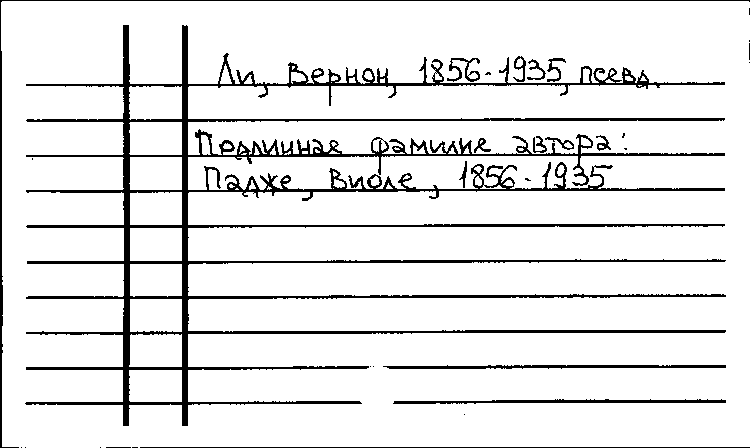 Ли, Вернон, 1856-1935, псевд.
Подлинная фамилия автора:
Паджe, Виоле, 1856-1935